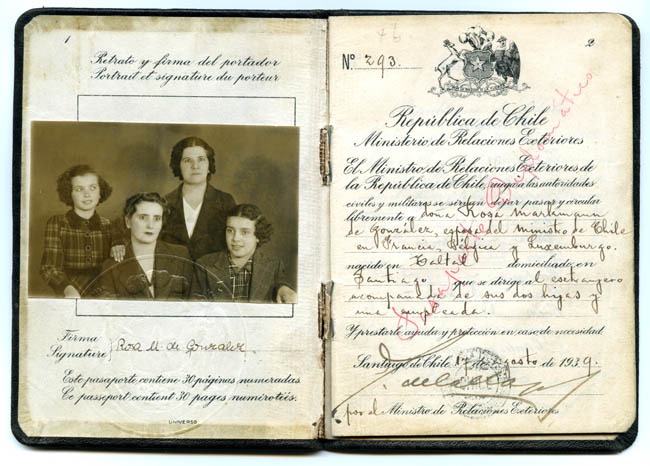 1
Retrato y firma del portador
Portrait et signature du porteur
Firma
Signature
Rosa M. de Gonzalez.
Este pasaporte contiene 30 páginas numeradas
Ce passeport contient 30 pages numérotées.
UNIVERSO
2
Nº 293.
República de Chile
Ministerio de Relaciones Exteriores
El Ministro de Relaciones Exteriores de
la República de Chile, ruega a las autoridades
civiles y militares se sirvan dejar pasar y circular
libremente a doña Rosa Markmann
de González, esposa del Ministro de Chile
en Francia, Bélgica y Luxemburgo.
nacido en Taltal domiciliado en
Santiago que se dirige al extranjero
acompañada de sus dos hijas y
una empleada.
Y prestarle ayuda y protección en caso de necesidad
Santiago de Chile 17 de Agosto de 1939.
por el Ministro de Relaciones Exteriores